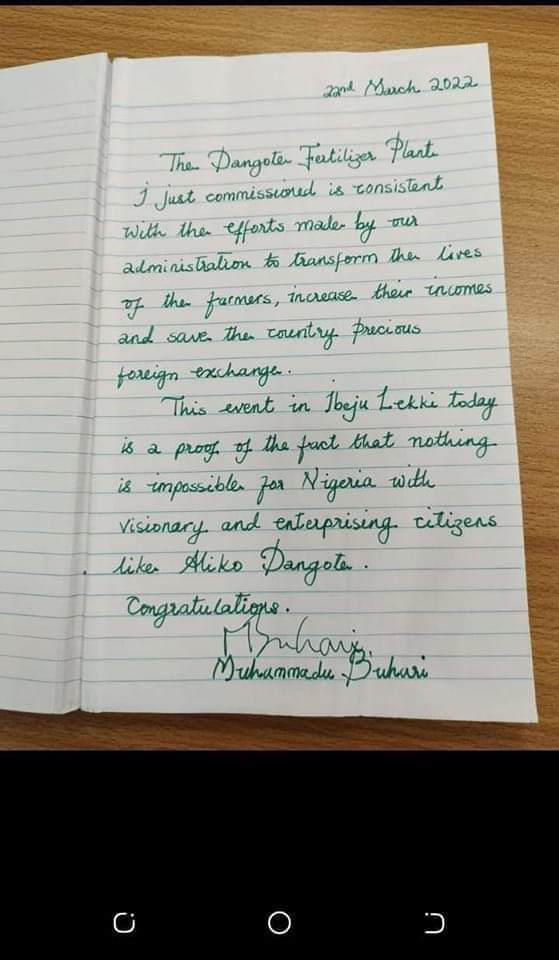 22nd March 2022
The Dangote Fertilizer Plant
I just commissioned is consistent
with the efforts made by our
administration to transform the lives
of the farmers, increase their incomes
and save the country precious
foreign exchange.
This event in Ibeju Lekki today
is a proof of the fact that nothing
is impossible for Nigeria with
visionary and enterprising citizens
like Aliko Dangote.
Congratulations.
MBuhari.
Muhammadu Buhari